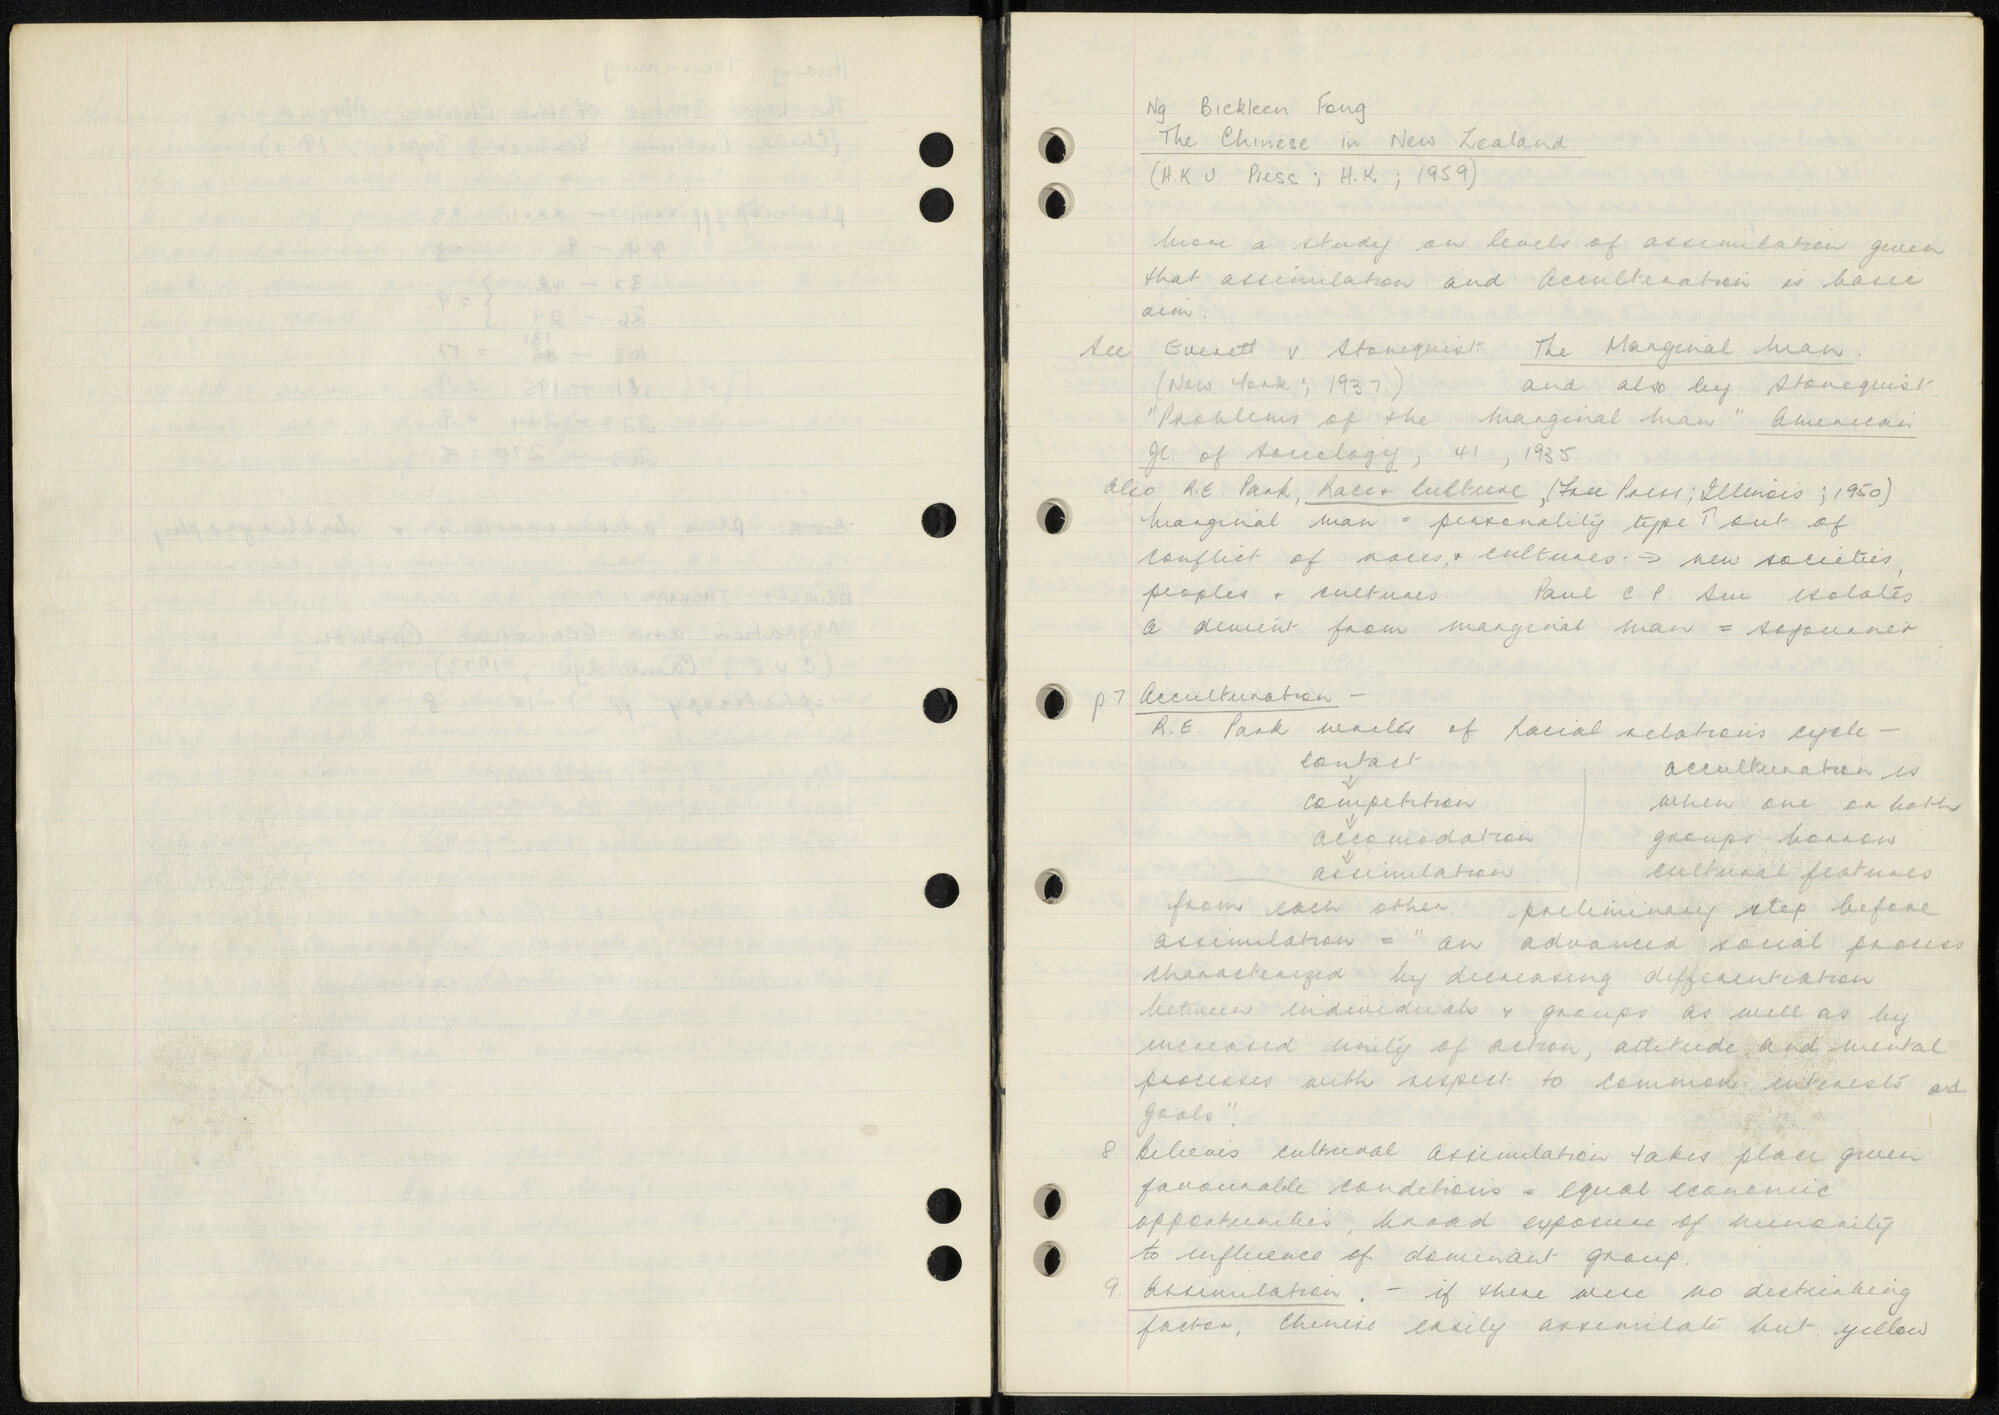 Ng Bickleen Fong
The Chinese in New Zealand
(H.K.U. Press; H.K.; 1959)
More a study on levels of assimilation given
that assimilation and acculturation is basic
aim.
See Everett V. Stonequist. The Marginal Man.
(New York; 1937) and also by Stonequist
"Problems of the Marginal Man" American
Jl. of Sociology, 41, 1935
Also R.E. Park, Race & Culture, (Free Press; Illinois; 1950)
Marginal man = personality type ↑ out of
conflict of races, & cultures → new societies,
peoples & cultures. Paul C.P. Siu isolates
a deviant from marginal man = sojourner
p.7 Acculturation -
R.E. Park writes of Racial relations cycle -
contact
↓
competition
↓
accomodation
↓
assimilation
acculturation is
when one or both
groups borrow
cultural features
from each other. preliminary step before
assimilation = "an advanced social process
characterized by decreasing differentiation
between individuals & groups as well as by
increased unity of action, attitude and mental
processes with respect to common interests and
goals".
8 Believes cultural assimilation takes place given
favourable conditions = equal economic
opportunities, broad exposure of minority
to influence of dominant group.
9. Assimilation. - if there were no disturbing
factor, Chinese easily assimilate but yellow